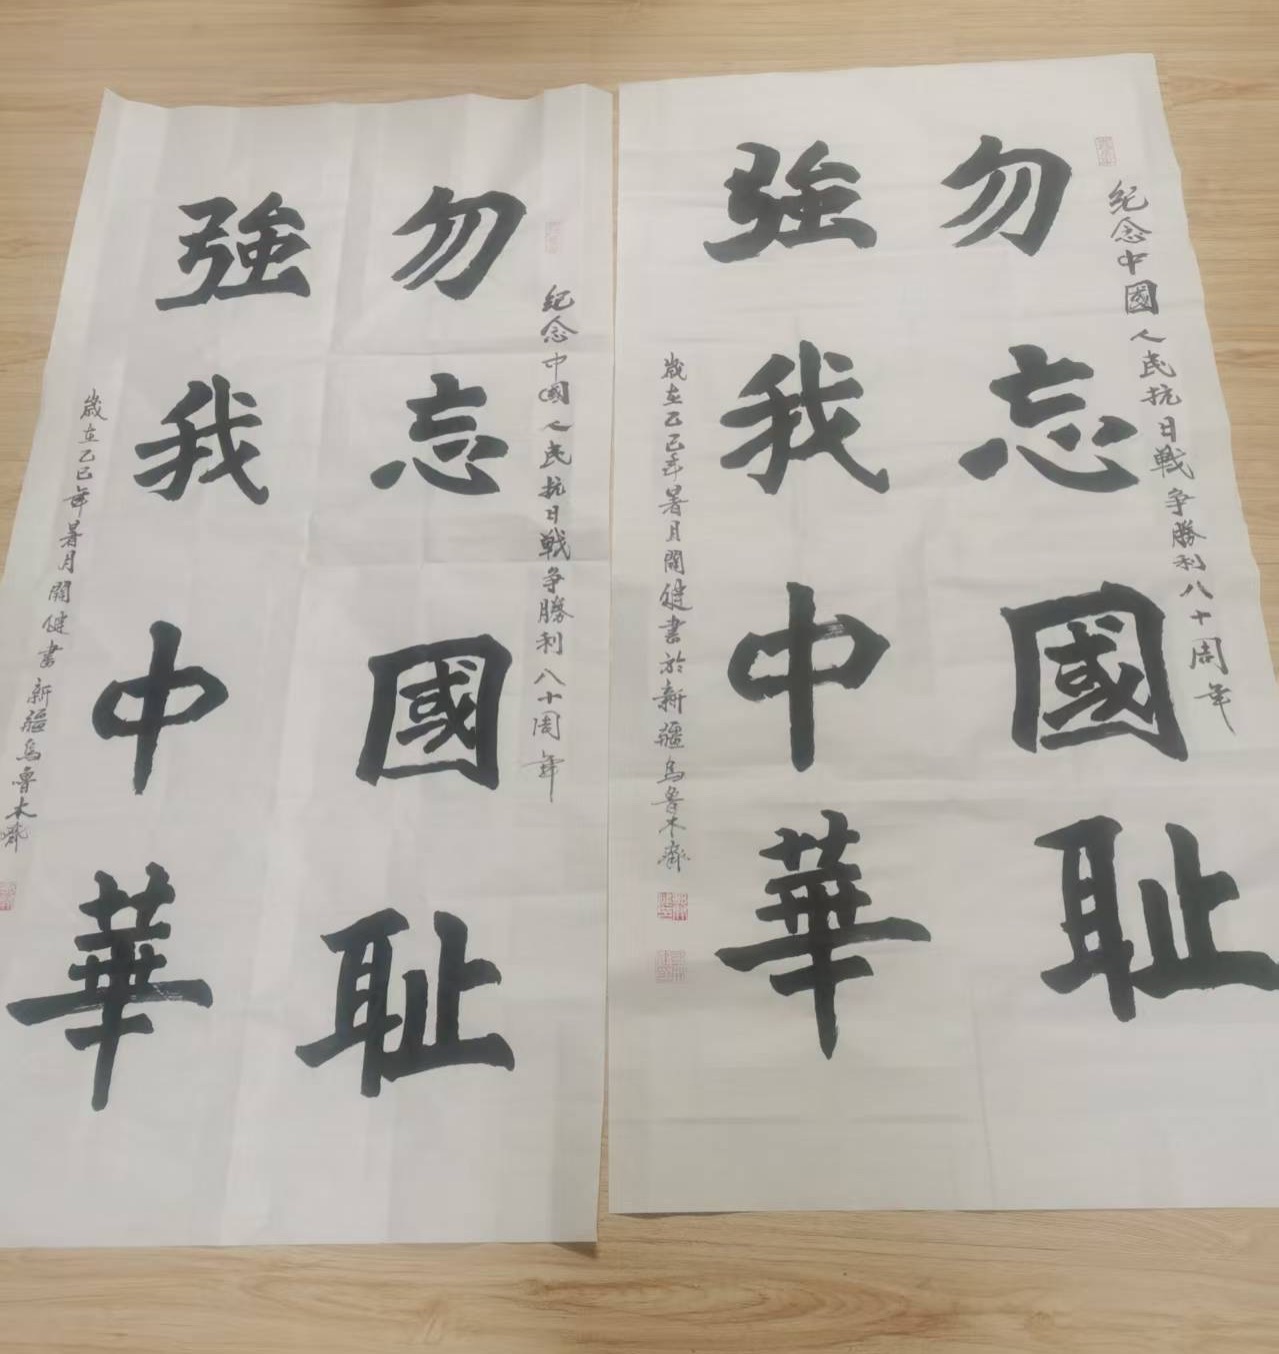 紀念中國人民抗日戰争勝利八十周年
勿忘國耻
強我中華
歲在乙巳年暑月關健書於新疆烏魯木齊
紀念中國人民抗日戰争勝利八十周年
勿忘國耻
強我中華
歲在乙巳年暑月關健書新疆烏魯木齊